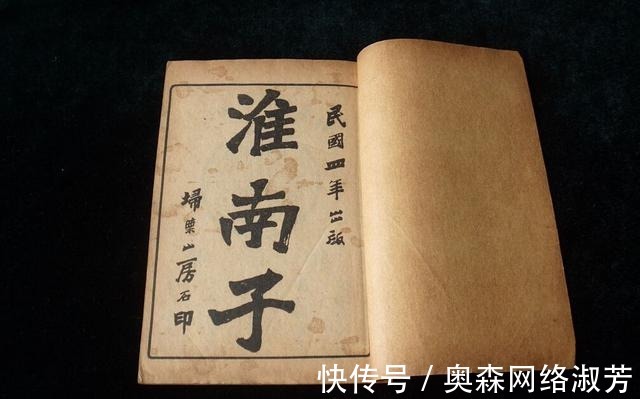 民國四年出版
淮南子
埽葉山房石印
快传号 / 奥森网络淑芳